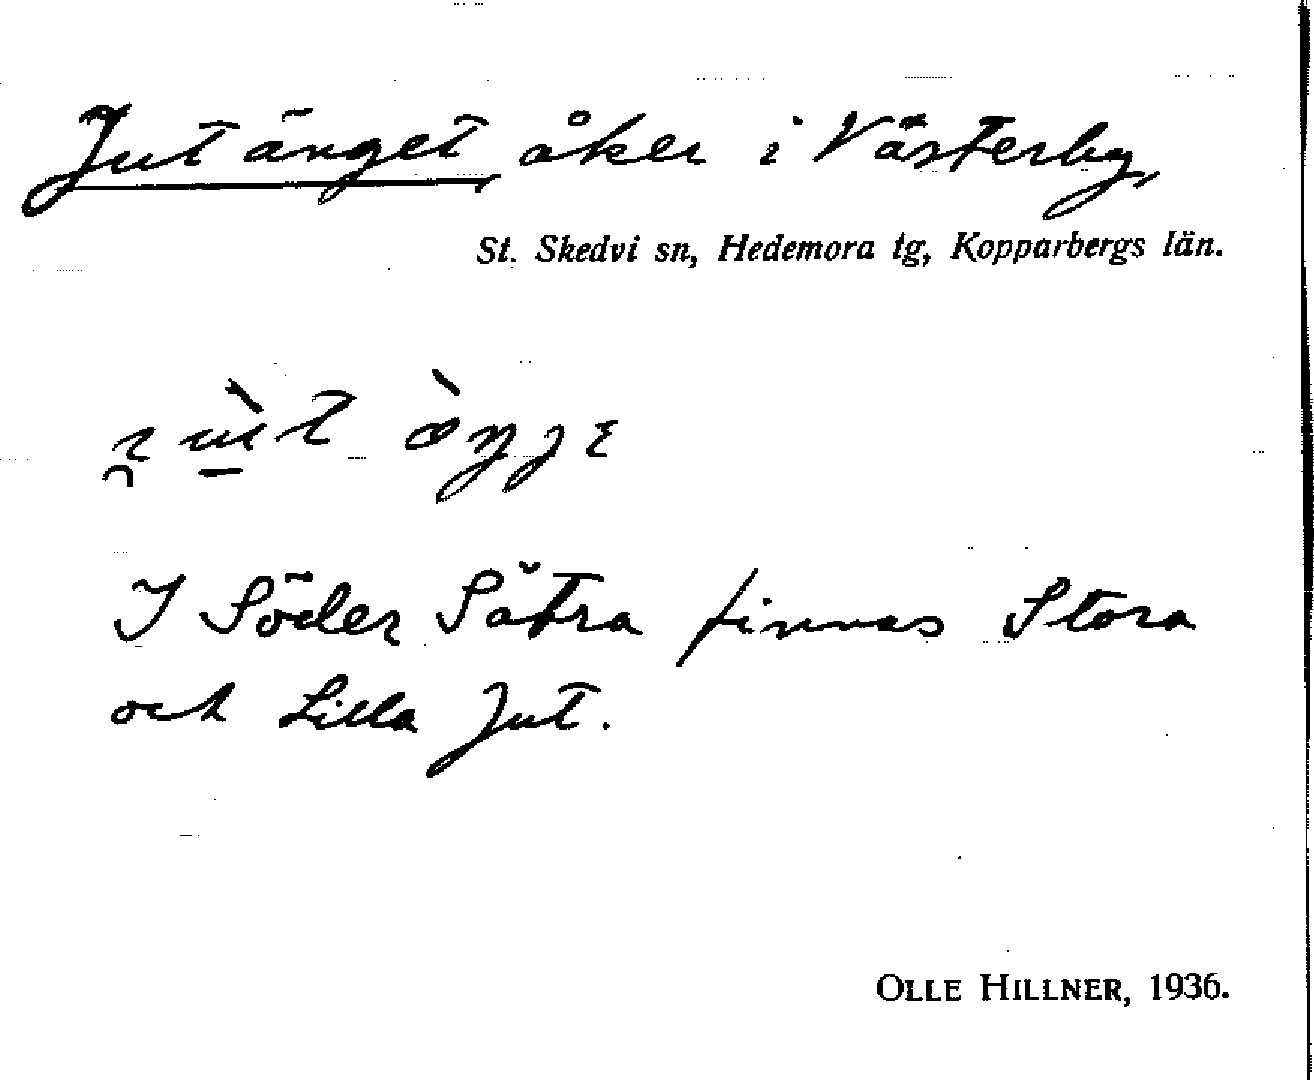 Jutänget, åker i Västerby,
St. Skedvi sn, Hedemora tg, Kopparbergs län.
I Söder Sätra finnas Stora
och Lilla Jut.
OLLE HILLNER, 1936.